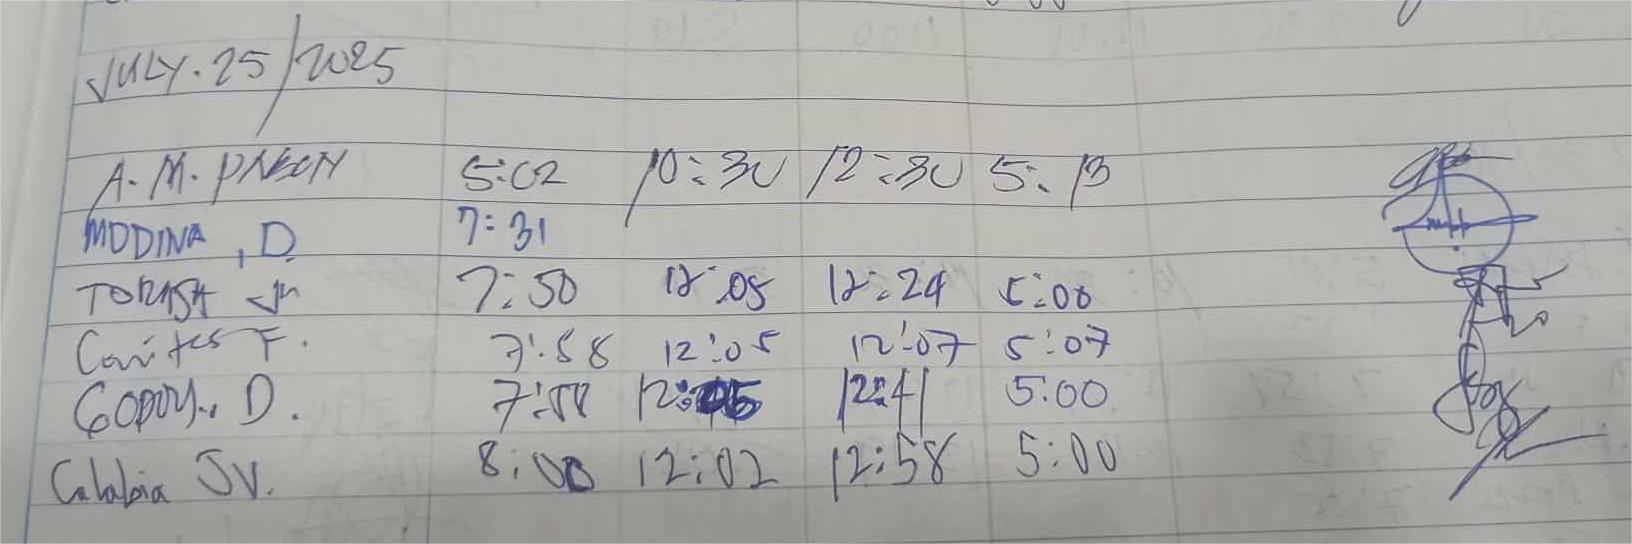 JULY.25/2025
A.M. 5:02 10:30 12:30 5:13
MODINA, D. 7:31
7:50 12:05 12:24 5:00
F. 7:58 12:05 12:07 5:07
GODOY., D. 7:58 12:41 5:00
JV. 8:00 12:02 12:58 5:00